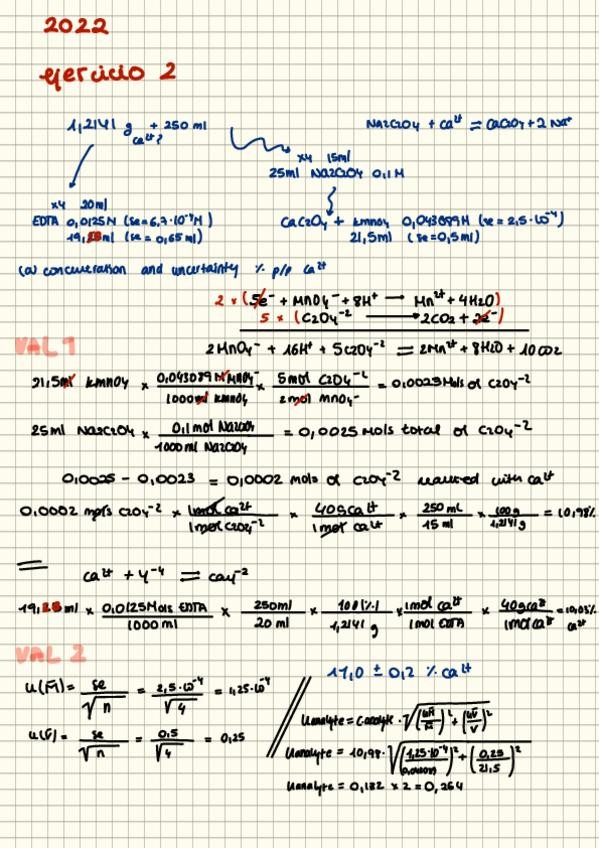 2022
ejercicio 2
1,2141 g Ca²⁺? + 250 ml
Na2C2O4 + Ca²⁺ ⇌ CaC2O4 + 2 Na⁺
x4 15ml
25ml Na2C2O4 0,1M
x4 20ml
EDTA 0,0125M (se=6,7·10⁻⁴M)
19,28ml (se = 0,65ml)
CaC2O4 + KMnO4 0,043089M (se = 2,5·10⁻⁴)
21,5ml (se=0,5ml)
(a) concentration and uncertainty % p/p Ca²⁺
2 × (5e⁻ + MnO4⁻ + 8H⁺ → Mn²⁺ + 4H2O)
5 × (C2O4⁻² → 2CO2 + 2e⁻)
VAL 1
2MnO4⁻ + 16H⁺ + 5C2O4⁻² = 2Mn²⁺ + 8H2O + 10CO2
21,5ml KMnO4 × 0,043089 M MnO4⁻ / 1000ml KMnO4 × 5mol C2O4⁻² / 2mol MnO4⁻ = 0,0023 Mols of C2O4⁻²
25ml Na2C2O4 × 0,1mol Na2C2O4 / 1000ml Na2C2O4 = 0,0025 Mols total of C2O4⁻²
0,0025 - 0,0023 = 0,0002 mols of C2O4⁻² reacted with Ca²⁺
0,0002 mols C2O4⁻² × 1mol Ca²⁺ / 1mol C2O4⁻² × 40g Ca²⁺ / 1mol Ca²⁺ × 250mL / 15ml × 100g / 1,2141g = 10,98%
Ca²⁺ + Y⁻⁴ ⇌ CaY⁻²
19,28ml × 0,0125Mols EDTA / 1000ml × 250ml / 20ml × 100(%) / 1,2141 g × 1mol Ca²⁺ / 1mol EDTA × 40g Ca²⁺ / 1mol Ca²⁺ = 10,03% Ca²⁺
VAL 2
11,0 ± 0,2 % Ca²⁺
u(M̄) = se / √n = 2,5·10⁻⁴ / √4 = 1,25·10⁻⁴
u(V̄) = se / √n = 0,5 / √4 = 0,25
Uanalyte = Canalyte · √((uM̄/M̄)² + (uV̄/V̄)²)
Uanalyte = 10,98 · √((1,25·10⁻⁴/0,043089)² + (0,25/21,5)²)
Uanalyte = 0,132 × 2 = 0,264